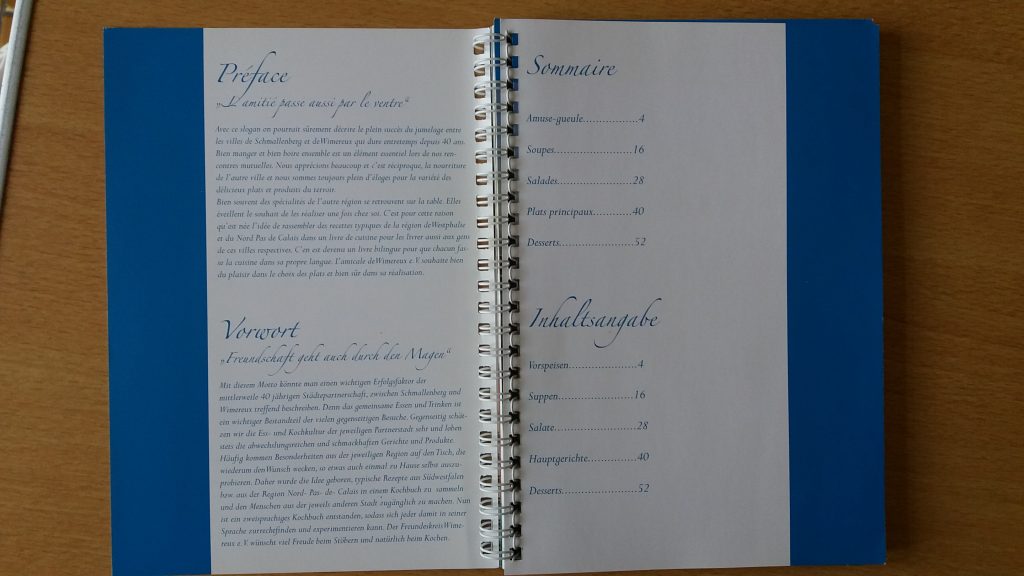 Préface
„L'amitié passe aussi par le ventre“
Avec ce slogan on pourrait sûrement décrire le plein succès du jumelage entre
les villes de Schmallenberg et de Wimereux qui dure entretemps depuis 40 ans.
Bien manger et bien boire ensemble est un élément essentiel lors de nos ren-
contres mutuelles. Nous apprécions beaucoup et c'est réciproque, la nourriture
de l'autre ville et nous sommes toujours plein d'éloges pour la variété des
délicieux plats et produits du terroir.
Bien souvent des spécialités de l'autre région se retrouvent sur la table. Elles
éveillent le souhait de les réaliser une fois chez soi. C'est pour cette raison
qu'est née l'idée de rassembler des recettes typiques de la région de Westphalie
et du Nord Pas de Calais dans un livre de cuisine pour les livrer aussi aux gens
de ces villes respectives. C'en est devenu un livre bilingue pour que chacun fas-
se la cuisine dans sa propre langue. L'amicale de Wimereux e.V. souhaite bien
du plaisir dans le choix des plats et bien sûr dans sa réalisation.
Vorwort
„Freundschaft geht auch durch den Magen“
Mit diesem Motto könnte man einen wichtigen Erfolgsfaktor der
mittlerweile 40 jährigen Städtepartnerschaft, zwischen Schmallenberg und
Wimereux treffend beschreiben. Denn das gemeinsame Essen und Trinken ist
ein wichtiger Bestandteil der vielen gegenseitigen Besuche. Gegenseitig schät-
zen wir die Ess- und Kochkultur der jeweiligen Partnerstadt sehr und loben
stets die abwechslungsreichen und schmackhaften Gerichte und Produkte.
Häufig kommen Besonderheiten aus der jeweiligen Region auf den Tisch, die
wiederum den Wunsch wecken, so etwas auch einmal zu Hause selbst auszu-
probieren. Daher wurde die Idee geboren, typische Rezepte aus Südwestfalen
bzw. aus der Region Nord- Pas- de- Calais in einem Kochbuch zu sammeln
und den Menschen aus der jeweils anderen Stadt zugänglich zu machen. Nun
ist ein zweisprachiges Kochbuch entstanden, sodass sich jeder damit in seiner
Sprache zurrechtfinden und experimentieren kann. Der Freundeskreis Wime-
reux e.V. wünscht viel Freude beim Stöbern und natürlich beim Kochen.
Sommaire
Amuse-gueule.................4
Soupes.......................16
Salades.......................28
Plats principaux............40
Desserts.......................52
Inhaltsangabe
Vorspeisen.....................4
Suppen.......................16
Salate.........................28
Hauptgerichte...............40
Desserts........................52